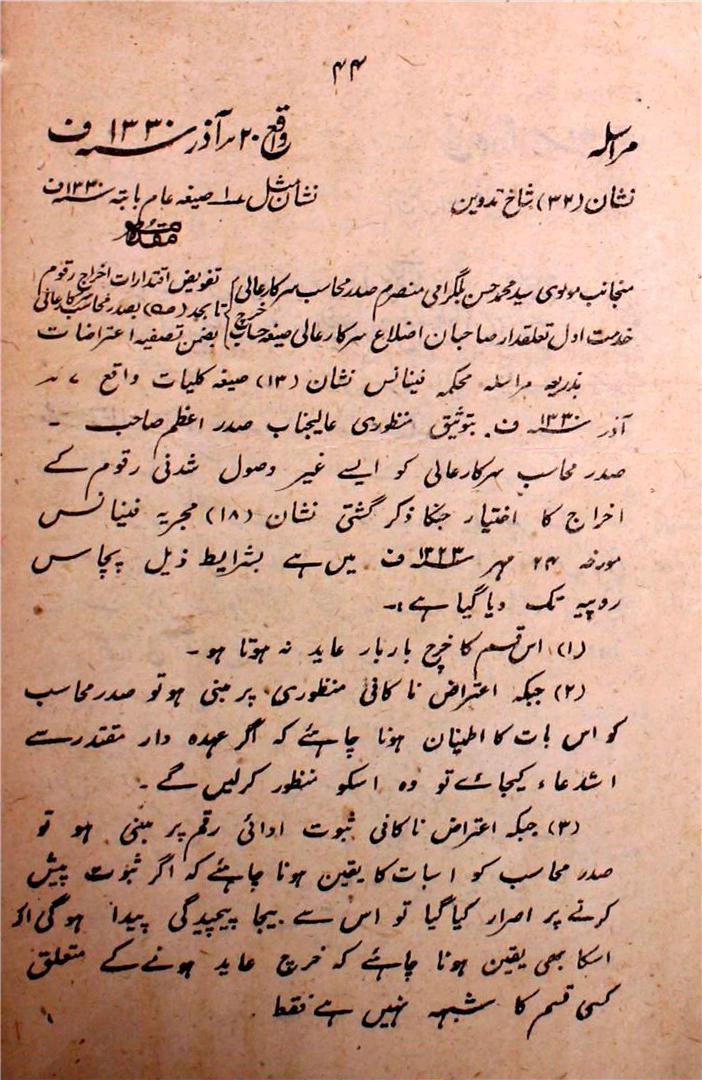 ۴۴
مراسلہ واقع ۲۰ آذر سنہ ۱۳۳۰ ف
نشان (۳۲) شاخ تدوین نشان مثل ۱ صیغہ عام بابتہ سنہ ۱۳۳۰ ف
مقدمہ
منجانب مولوی سید محمد حسن بلگرامی منصرم صدر محاسب سرکار عالی
خدمت اول تعلقدار صاحبان اضلاع سرکار عالی صیغہ حساب
تفویض اقتدارات اخراج رقوم
خرچ تا بحد (صہ) بصدر محاسب سرکار عالی
بضمن تصفیہ اعتراضات
بذریعہ مراسلہ محکمہ فینانس نشان (۱۳) صیغہ کلیات واقع ۷
آذر سنہ ۱۳۳۰ ف بتوثیق منظوری عالیجناب صدر اعظم صاحب ۔
صدر محاسب سرکار عالی کو ایسے غیر وصول شدنی رقوم کے
اخراج کا اختیار جنکا ذکر گشتی نشان (۱۸) مجریہ فینانس
مورخہ ۲۴ مہر سنہ ۱۳۲۳ ف میں ہے بشرایط ذیل پچاس
روپیہ تک دیا گیا ہے :۔
(۱) اس قسم کا خرچ بار بار عاید نہ ہوتا ہو ۔
(۲) جبکہ اعتراض ناکافی منظوری پر مبنی ہو تو صدر محاسب
کو اس بات کا اطمینان ہونا چاہئے کہ اگر عہدہ دار مقتدر سے
استدعاء کیجائے تو وہ اسکو منظور کرلیں گے ۔
(۳) جبکہ اعتراض ناکافی ثبوت ادائی رقم پر مبنی ہو تو
صدر محاسب کو اسبات کا یقین ہونا چاہئے کہ اگر ثبوت پیش
کرنے پر اصرار کیا گیا تو اس سے بیجا پیچیدگی پیدا ہوگی اور
اسکا بھی یقین ہونا چاہئے کہ خرچ عاید ہونے کے متعلق
کسی قسم کا شبہہ نہیں ہے فقط